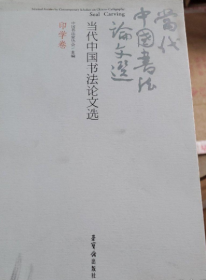 Seal Carving
當代
中國書法
論文選
当代中国书法论文选
印学卷
荣宝斋出版社